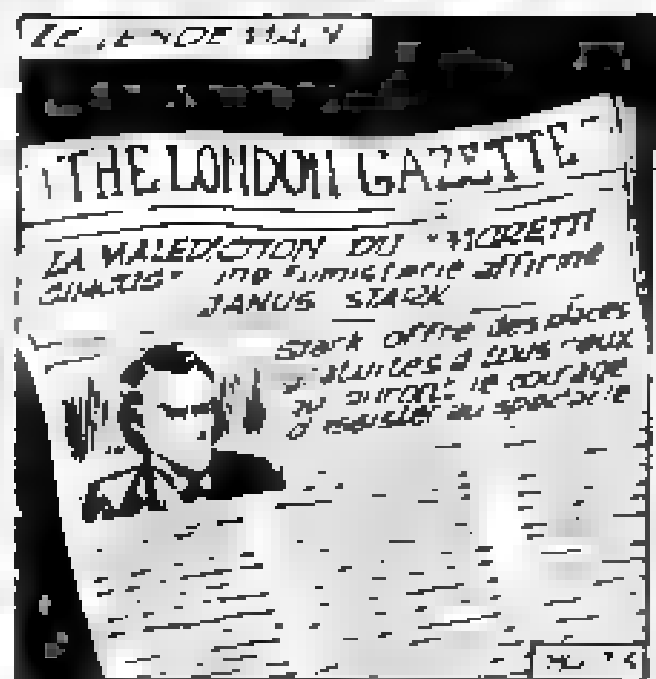 LE LENDEMAIN
THE LONDON GAZETTE
LA MALEDICTION DU "MORETTI
une fumisterie affirme
JANUS STARK
Stark offre des places
gratuites à tous ceux
qui auront le courage
d'assister au spectacle